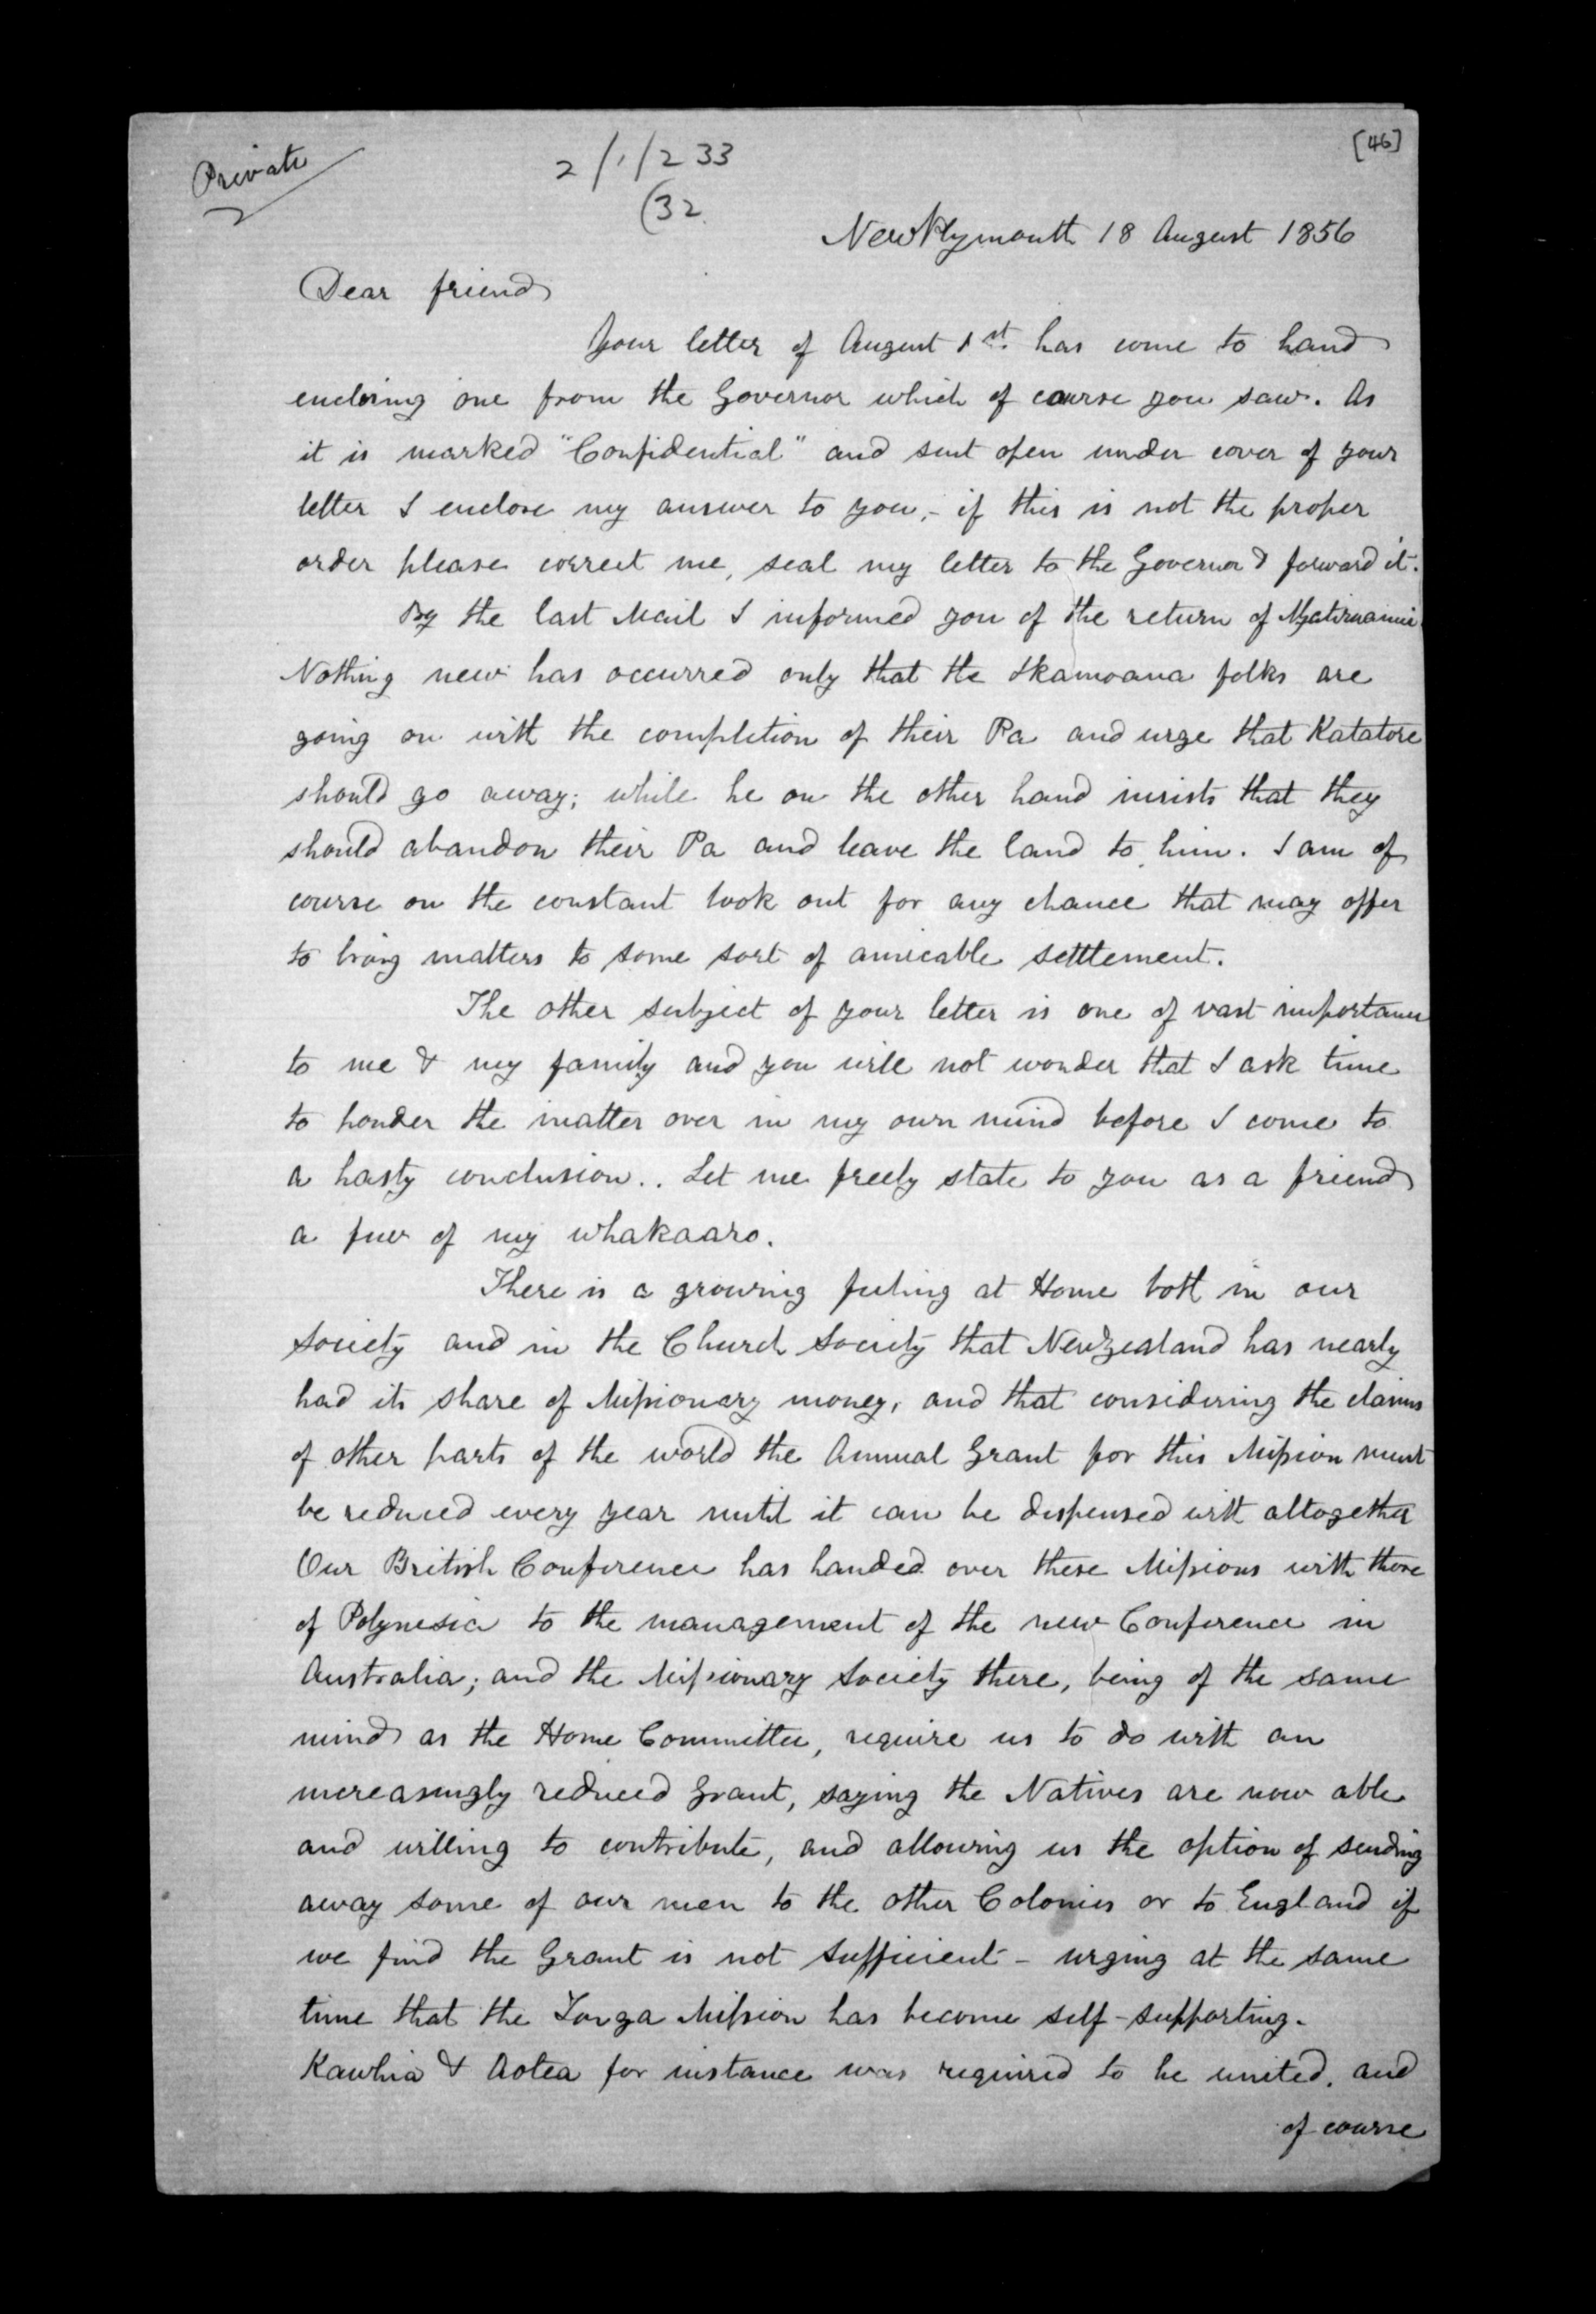 Private
2/1/233
(32
[46]
New Plymouth 18 August 1856
Dear friend
Your letter of August 1st. has come to hand
enclosing one from the Governor which of course you saw. As
it is marked "Confidential" and sent open under cover of your
letter I enclose my answer to you,- if this is not the proper
order please correct me, seal my letter to the Governor & forward it.
By the last Mail I informed you of the return of Ngatiruanui
Nothing new has occurred only that the Ikamoana folks are
going on with the completion of their Pa and urge that Katatore
should go away; while he on the other hand insists that they
should abandon their Pa and leave the land to him. I am of
course on the constant look out for any chance that may offer
to bring matters to some sort of amicable settlement.
The other subject of your letter is one of vast importance
to me & my family and you will not wonder that I ask time
to ponder the matter over in my own mind before I come to
a hasty conclusion.. Let me freely state to you as a friend
a few of my whakaaro.
There is a growing feeling at Home both in our
Society and in the Church Society that New Zealand has nearly
had its share of Missionary money, and that considering the claims
of other parts of the world the Annual Grant for this Mission must
be reduced every year until it can be dispensed with altogether
Our British Conference has handed over these Missions with those
of Polynesia to the management of the new Conference in
Australia; and the Missionary Society there, being of the same
mind as the Home Committee, require us to do with an
increasingly reduced Grant, saying the Natives are now able
and willing to contribute, and allowing us the option of sending
away some of our men to the other Colonies or to England if
we find the Grant is not sufficient - urging at the same
time that the Tonga Mission has become self-supporting.
Kawhia & Aotea for instance was required to be united, and
of course